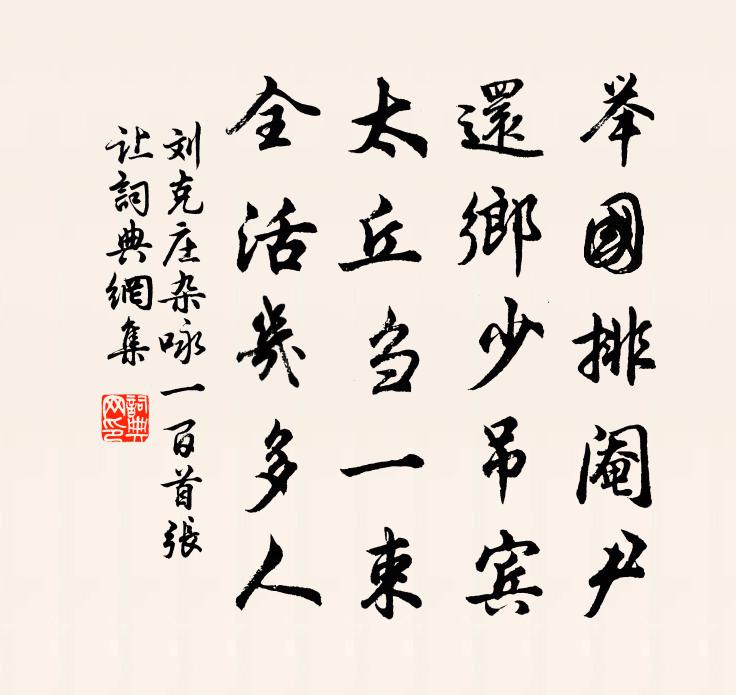 举國排阉尹
還鄉少吊宾
太丘刍一束
全活幾多人
刘克庄杂咏一百首張
让詞典網集
詞典网印